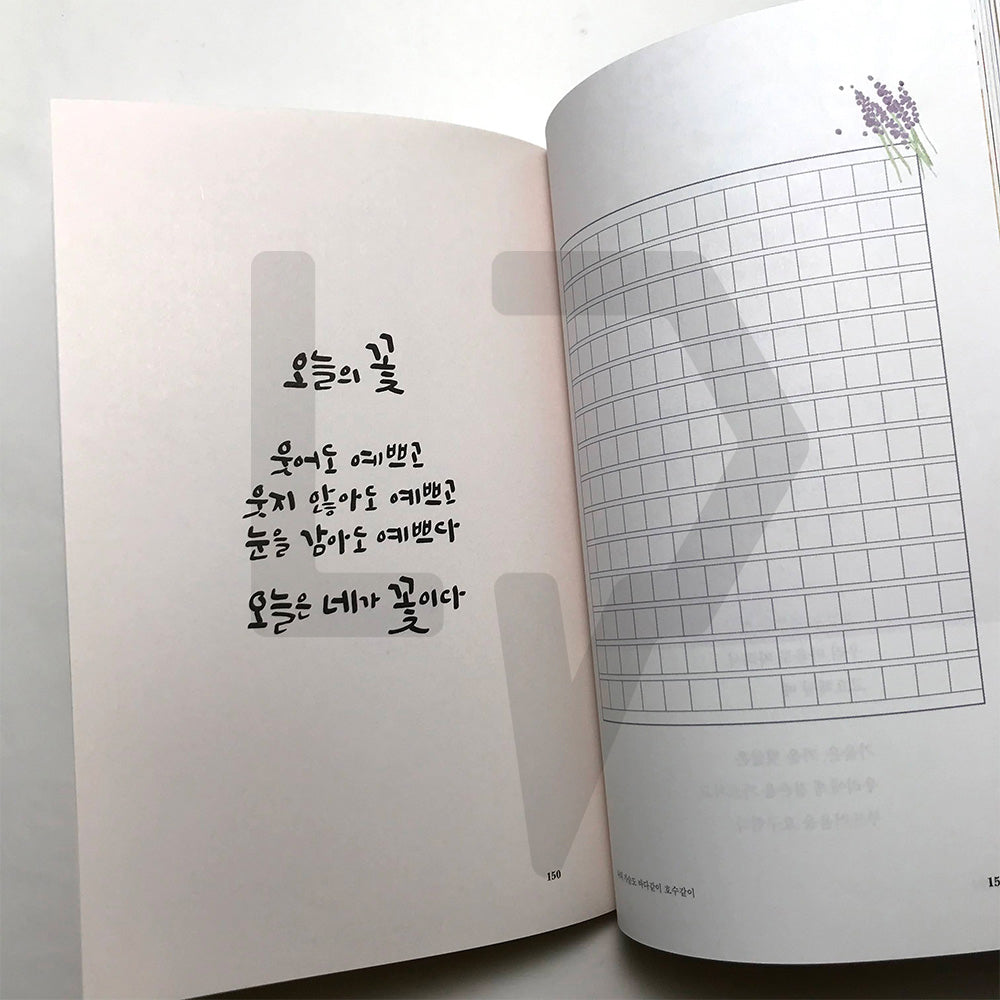 오늘의 꽃
웃어도 예쁘고
웃지 않아도 예쁘고
눈을 감아도 예쁘다
오늘은 네가 꽃이다
150
가슴도 바다같이 호수같이
15